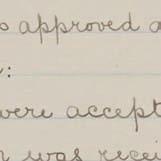 approved
:
were accept
was recei